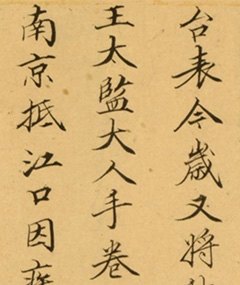 台表今歲又將
王太監大人手卷
南京抵江口因